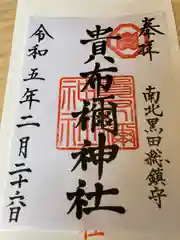 奉拝
南北黒田総鎮守
貴布禰神社
令和五年二月二十六日